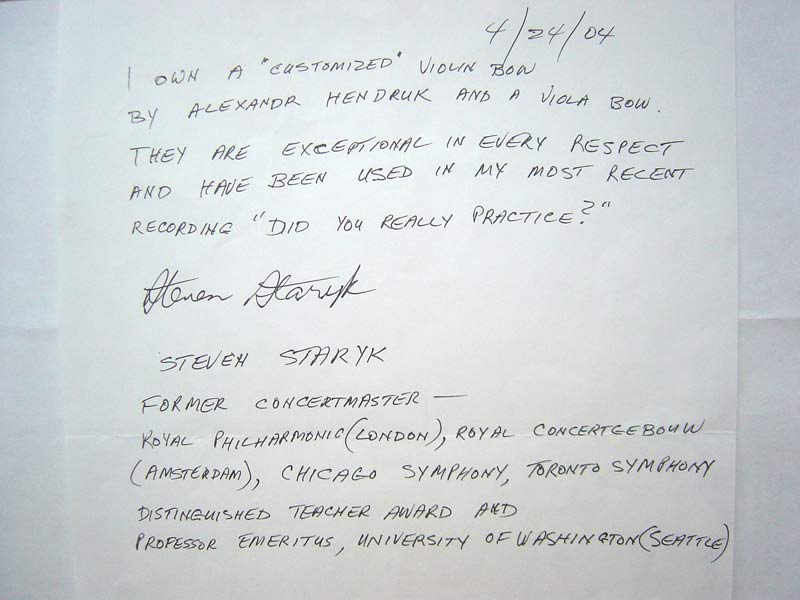 4/24/04
I OWN A "CUSTOMIZED" VIOLIN BOW
BY ALEXANDR HENDRUK AND A VIOLA BOW.
THEY ARE EXCEPTIONAL IN EVERY RESPECT
AND HAVE BEEN USED IN MY MOST RECENT
RECORDING "DID YOU REALLY PRACTICE?"
Steven Staryk
STEVEN STARYK
FORMER CONCERTMASTER —
ROYAL PHILHARMONIC (LONDON), ROYAL CONCERTGEBOUW
(AMSTERDAM), CHICAGO SYMPHONY, TORONTO SYMPHONY
DISTINGUISHED TEACHER AWARD AND
PROFESSOR EMERITUS, UNIVERSITY OF WASHINGTON (SEATTLE)